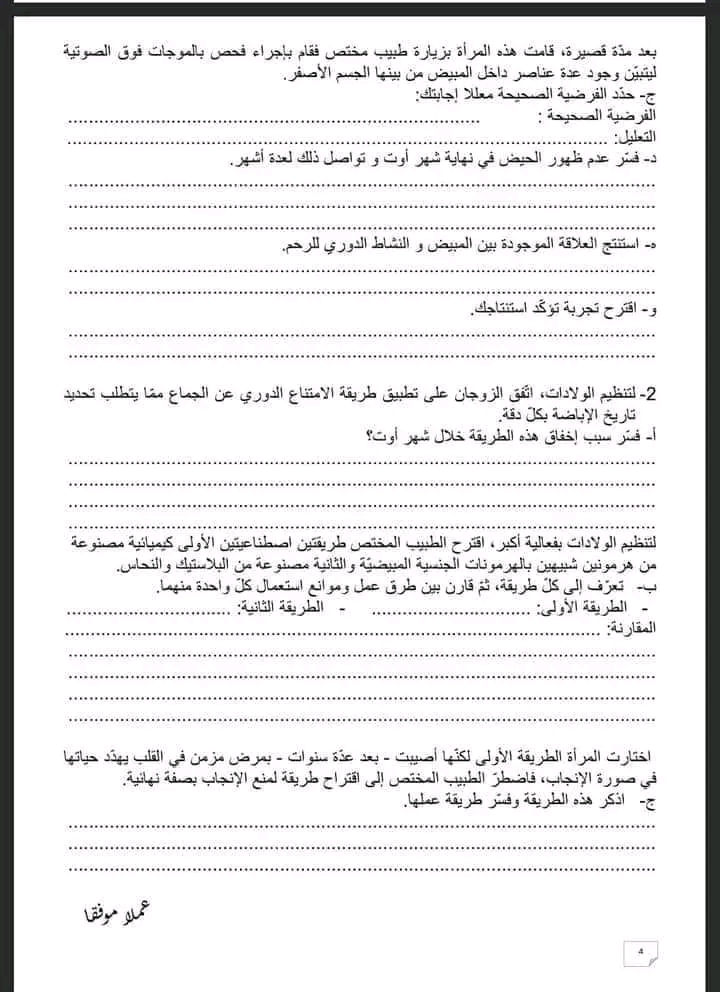 بعد مدّة قصيرة، قامت هذه المرأة بزيارة طبيب مختص فقام بإجراء فحص بالموجات فوق الصوتية
ليتبيّن وجود عدة عناصر داخل المبيض من بينها الجسم الأصفر.
ج- حدّد الفرضية الصحيحة معللا إجابتك:
الفرضية الصحيحة : ................................................................................
التعليل: ................................................................................
د- فسّر عدم ظهور الحيض في نهاية شهر أوت و تواصل ذلك لعدة أشهر.
................................................................................
................................................................................
................................................................................
ه- استنتج العلاقة الموجودة بين المبيض و النشاط الدوري للرحم.
................................................................................
................................................................................
و- اقترح تجربة تؤكّد استنتاجك.
................................................................................
................................................................................
2- لتنظيم الولادات، اتّفق الزوجان على تطبيق طريقة الامتناع الدوري عن الجماع ممّا يتطلب تحديد
تاريخ الإباضة بكلّ دقة.
أ- فسّر سبب إخفاق هذه الطريقة خلال شهر أوت؟
................................................................................
................................................................................
................................................................................
................................................................................
لتنظيم الولادات بفعالية أكبر، اقترح الطبيب المختص طريقتين اصطناعيتين الأولى كيميائية مصنوعة
من هرمونين شبيهين بالهرمونات الجنسية المبيضيّة والثانية مصنوعة من البلاستيك والنحاس.
ب- تعرّف إلى كلّ طريقة، ثمّ قارن بين طرق عمل وموانع استعمال كلّ واحدة منهما.
- الطريقة الأولى: ................................ - الطريقة الثانية: ................................
المقارنة: ................................................................................
................................................................................
................................................................................
................................................................................
................................................................................
اختارت المرأة الطريقة الأولى لكنّها أصيبت - بعد عدّة سنوات - بمرض مزمن في القلب يهدّد حياتها
في صورة الإنجاب، فاضطرّ الطبيب المختص إلى اقتراح طريقة لمنع الإنجاب بصفة نهائية.
ج- اذكر هذه الطريقة وفسّر طريقة عملها.
................................................................................
................................................................................
................................................................................
عملا موفقا
4